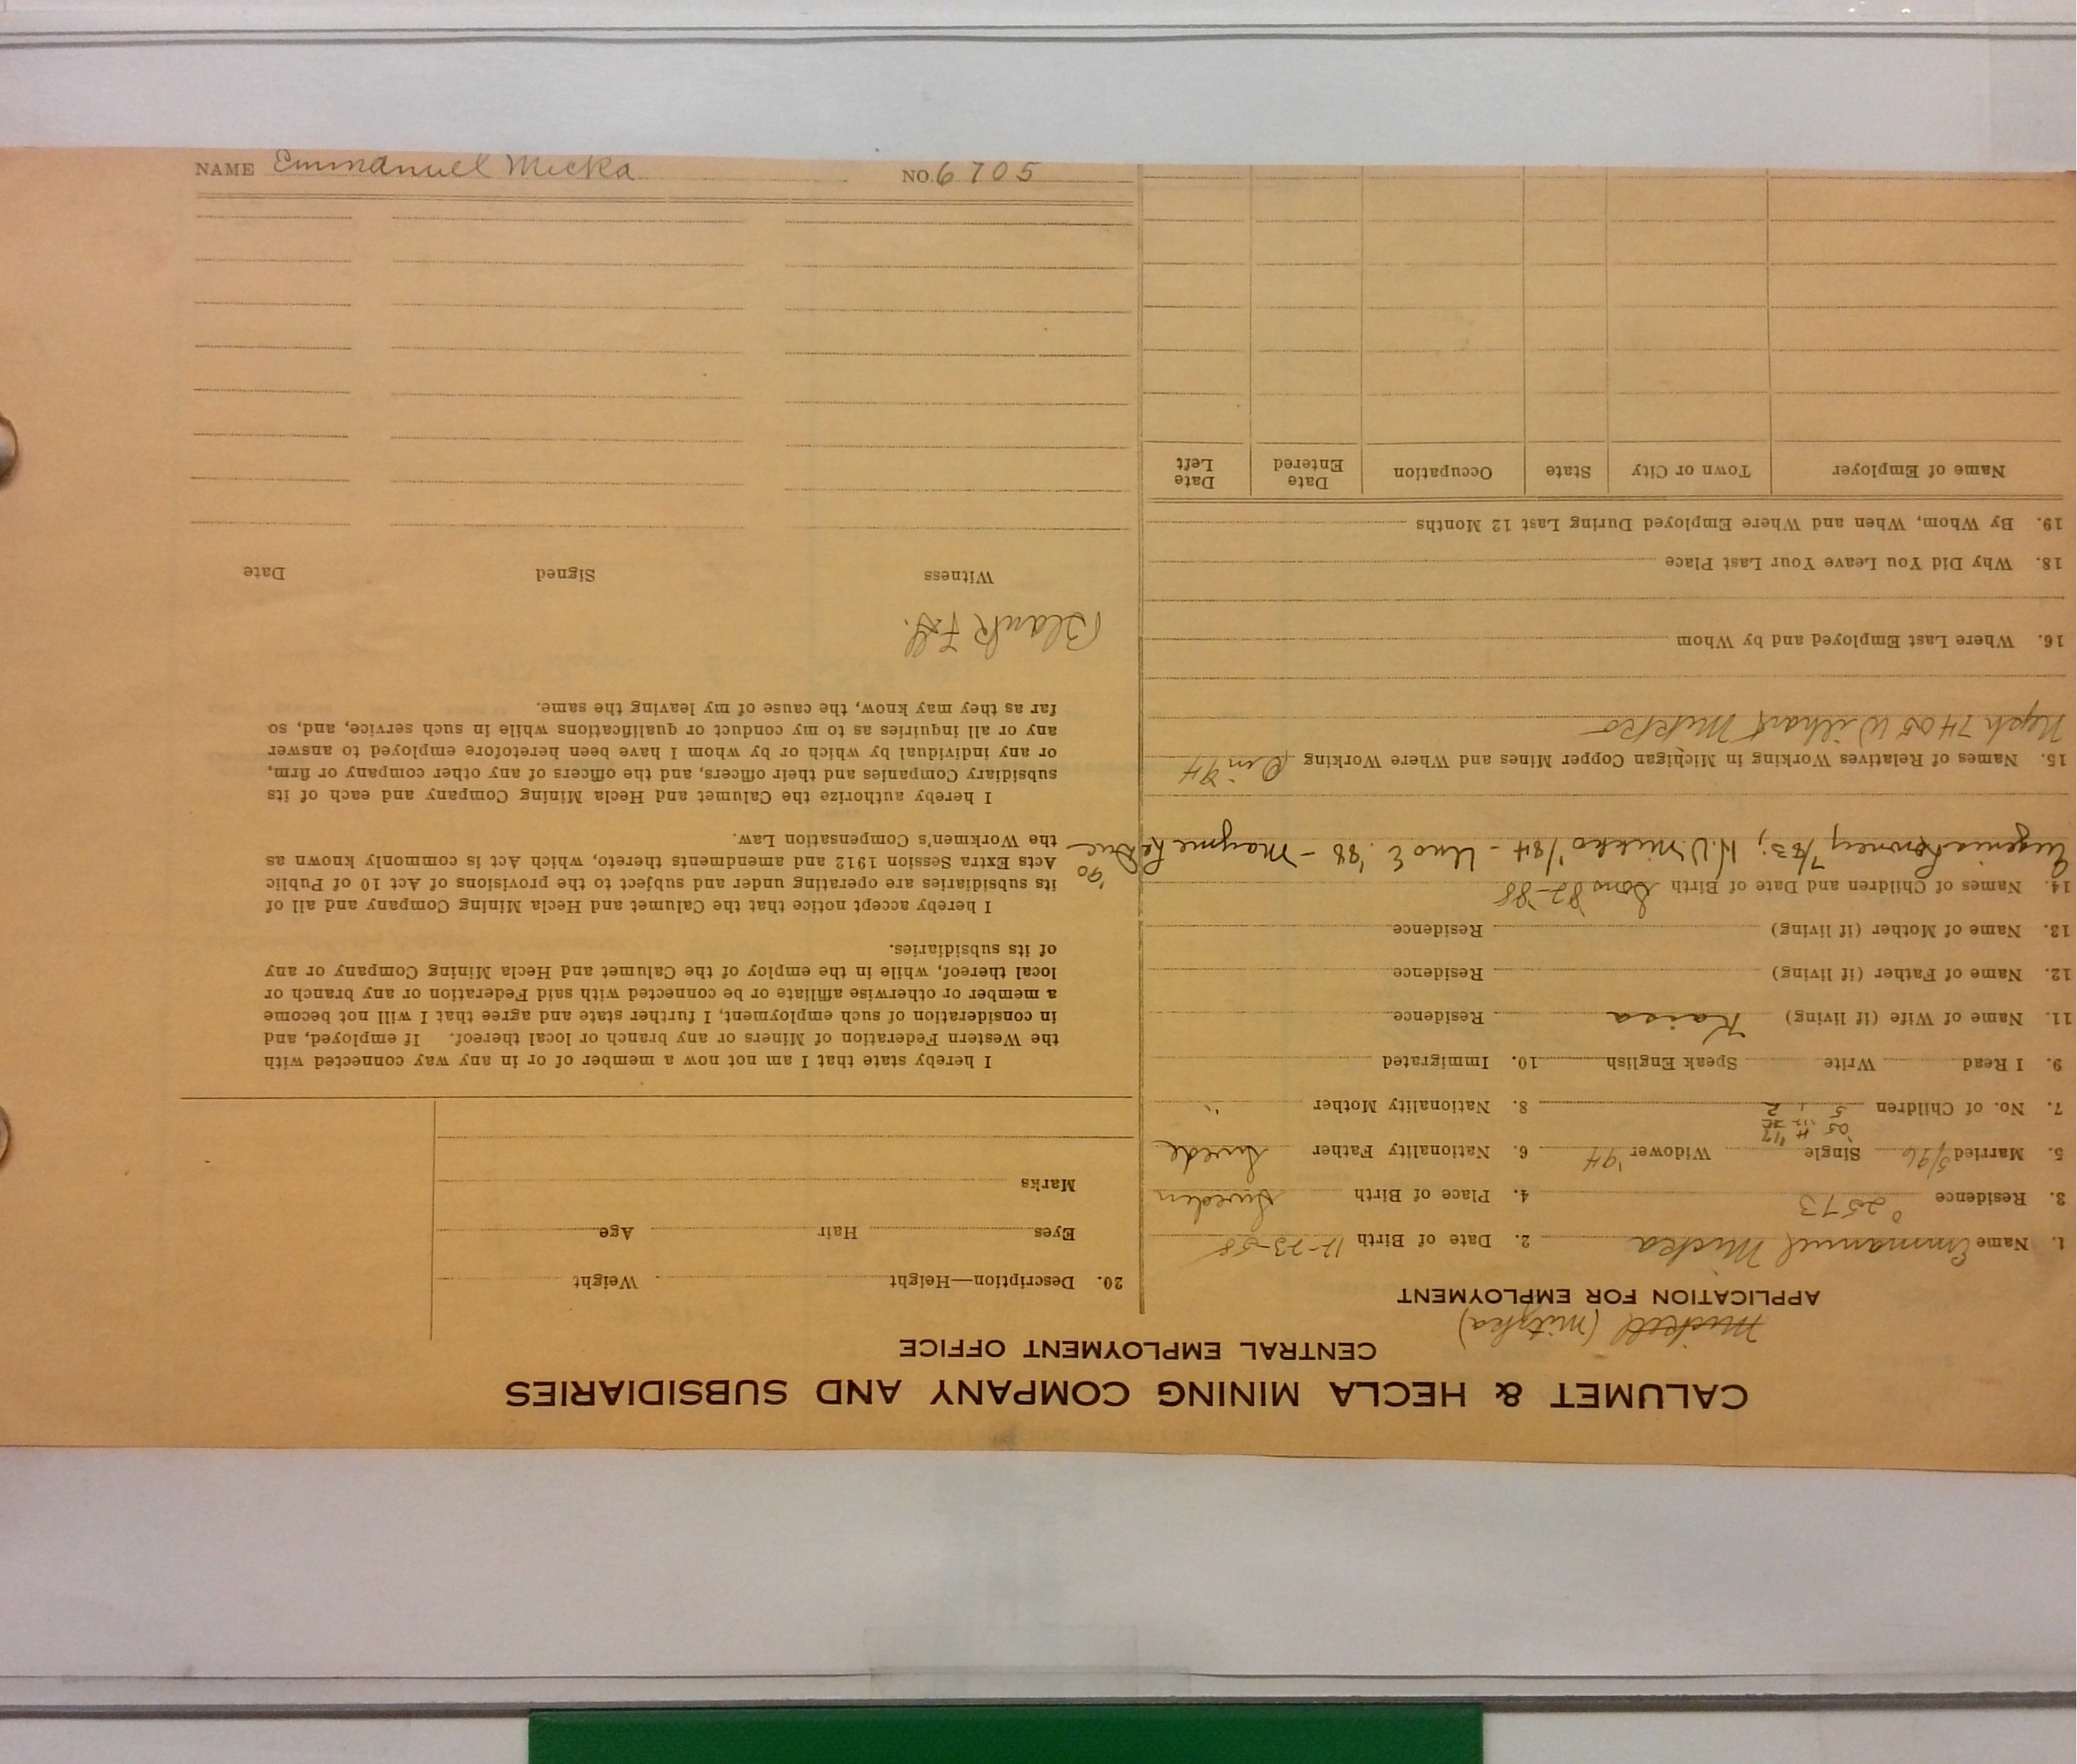 CALUMET & HECLA MINING COMPANY AND SUBSIDIARIES
CENTRAL EMPLOYMENT OFFICE
Mickell (mitzka)
APPLICATION FOR EMPLOYMENT
1. Name Emmanuel Micka 2. Date of Birth 12-23-58
3. Residence 2573 4. Place of Birth Sweden
5. Married 5/96 Single Widower '94 6. Nationality Father Swede
'05 '17
7. No. of Children 5 1 2 8. Nationality Mother "
9. I Read Write Speak English 10. Immigrated
11. Name of Wife (if living) Kaisa Residence
12. Name of Father (if living) Residence
13. Name of Mother (if living) Residence
14. Names of Children and Date of Birth Sons 82-'88
Eugenia 7/83; H.V. Mickko 1/84 - Uno E. '88 - Mayme LeDuc '90
15. Names of Relatives Working in Michigan Copper Mines and Where Working
Neph 7405 Wilhart Mickko
16. Where Last Employed and by Whom
18. Why Did You Leave Your Last Place
19. By Whom, When and Where Employed During Last 12 Months
Name of Employer Town or City State Occupation Date Entered Date Left
20. Description—Height Weight
Eyes Hair Age
Marks
I hereby state that I am not now a member of or in any way connected with
the Western Federation of Miners or any branch or local thereof. If employed, and
in consideration of such employment, I further state and agree that I will not become
a member or otherwise affiliate or be connected with said Federation or any branch or
local thereof, while in the employ of the Calumet and Hecla Mining Company or any
of its subsidiaries.
I hereby accept notice that the Calumet and Hecla Mining Company and all of
its subsidiaries are operating under and subject to the provisions of Act 10 of Public
Acts Extra Session 1912 and amendments thereto, which Act is commonly known as
the Workmen's Compensation Law.
I hereby authorize the Calumet and Hecla Mining Company and each of its
subsidiary Companies and their officers, and the officers of any other company or firm,
or any individual by which or by whom I have been heretofore employed to answer
any or all inquiries as to my conduct or qualifications while in such service, and, so
far as they may know, the cause of my leaving the same.
Blank
Witness Signed Date
NAME Emmanuel Micka NO. 6705